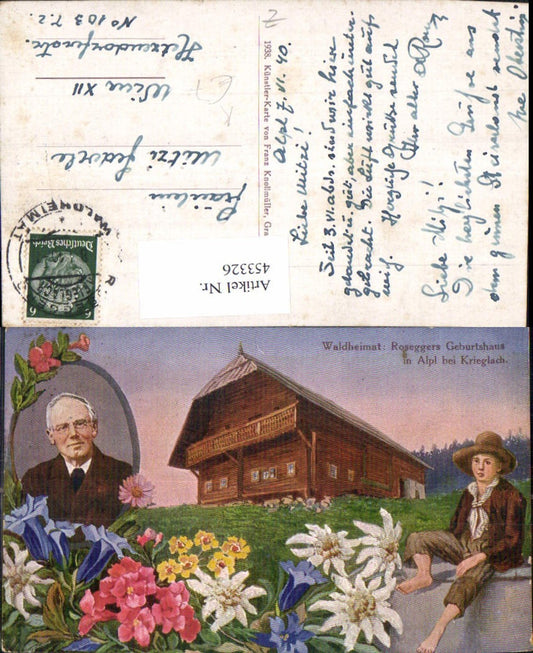 Waldheimat: Roseggers Geburtshaus
in Alpl bei Krieglach.
Alpl 7. VI. 40.
Liebe Mitzi!
Seit 3. VI. abds. sind wir hier
gut, aber einfach unter-
gebracht. Die Luft wirkt gut auf
mich. Herzliche Grüße sendet
Ihnen aller
Liebe Mitzi!
Die herzlichsten Grüße aus
dem grünen Steiererland sendet
1938. Künstler-Karte von Franz Knollmüller, Gra
Fräulein
Mitzi
Wien XII
Hetzendorferstr.
No 103 T. 2.
Deutsches Reich
6 6
WALDHEIMAT
Artikel Nr.
453326